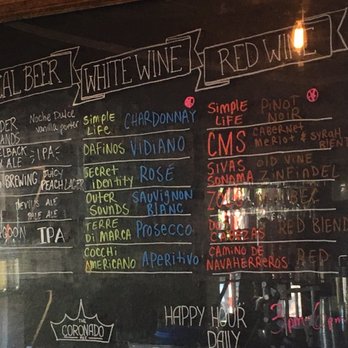 CAL BEER
Noche Dulce
vanilla porter
IPA
BREWING Juicy
Peach Lager
Pale Ale
IPA
WHITE WINE
SIMPLE LIFE CHARDONNAY
DAFINOS VIDIANO
SECRET IDENTITY ROSÉ
OUTER SOUNDS SAUVIGNON BLANC
TERRE DI MARCA Prosecco
COCCHI AMERICANO Aperitivo
RED WINE
SIMPLE LIFE PINOT NOIR
CMS CABERNET MERLOT & SYRAH BLEND
SIVAS SONOMA OLD VINE ZINFANDEL
RED BLEND
CAMINO DE NAVAHERREROS RED
THE
CORONADO
HAPPY HOUR
DAILY